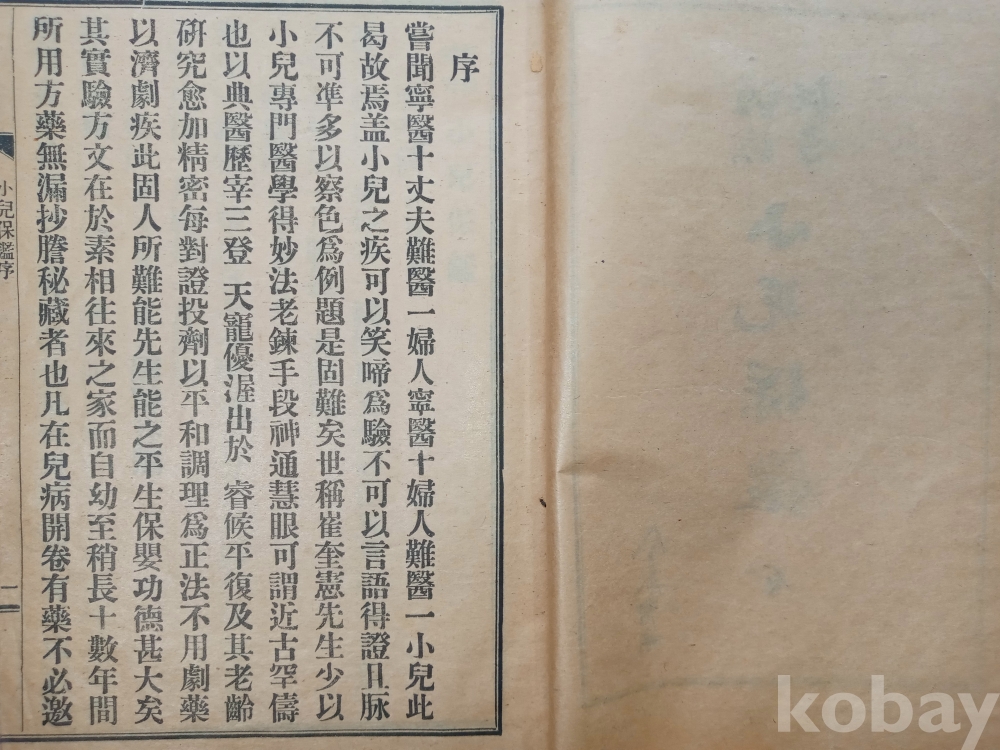 序
嘗聞寧醫十丈夫難醫一婦人寧醫十婦人難醫一小兒此
曷故焉盖小兒之疾可以笑啼爲驗不可以言語得證且脉
不可準多以察色爲例題是固難矣世稱崔奎憲先生少以
小兒專門醫學得妙法老鍊手段神通慧眼可謂近古罕儔
也以典醫歷宰三登 天寵優渥出於 睿候平復及其老齡
硏究愈加精密每對證投劑以平和調理爲正法不用劇藥
以濟劇疾此固人所難能先生能之平生保嬰功德甚大矣
其實驗方文在於素相往來之家而自幼至稍長十數年間
所用方藥無漏抄謄秘藏者也凡在兒病開卷有藥不必邀
小兒保鑑序
一
kobay